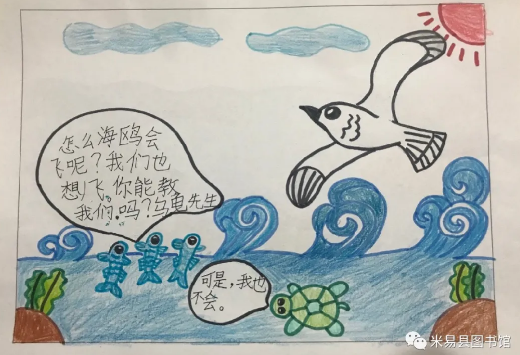 怎么海鸥会
飞呢？我们也
想飞，你能教
我们吗？乌龟先生
可是，我也
不会。
米易县图书馆